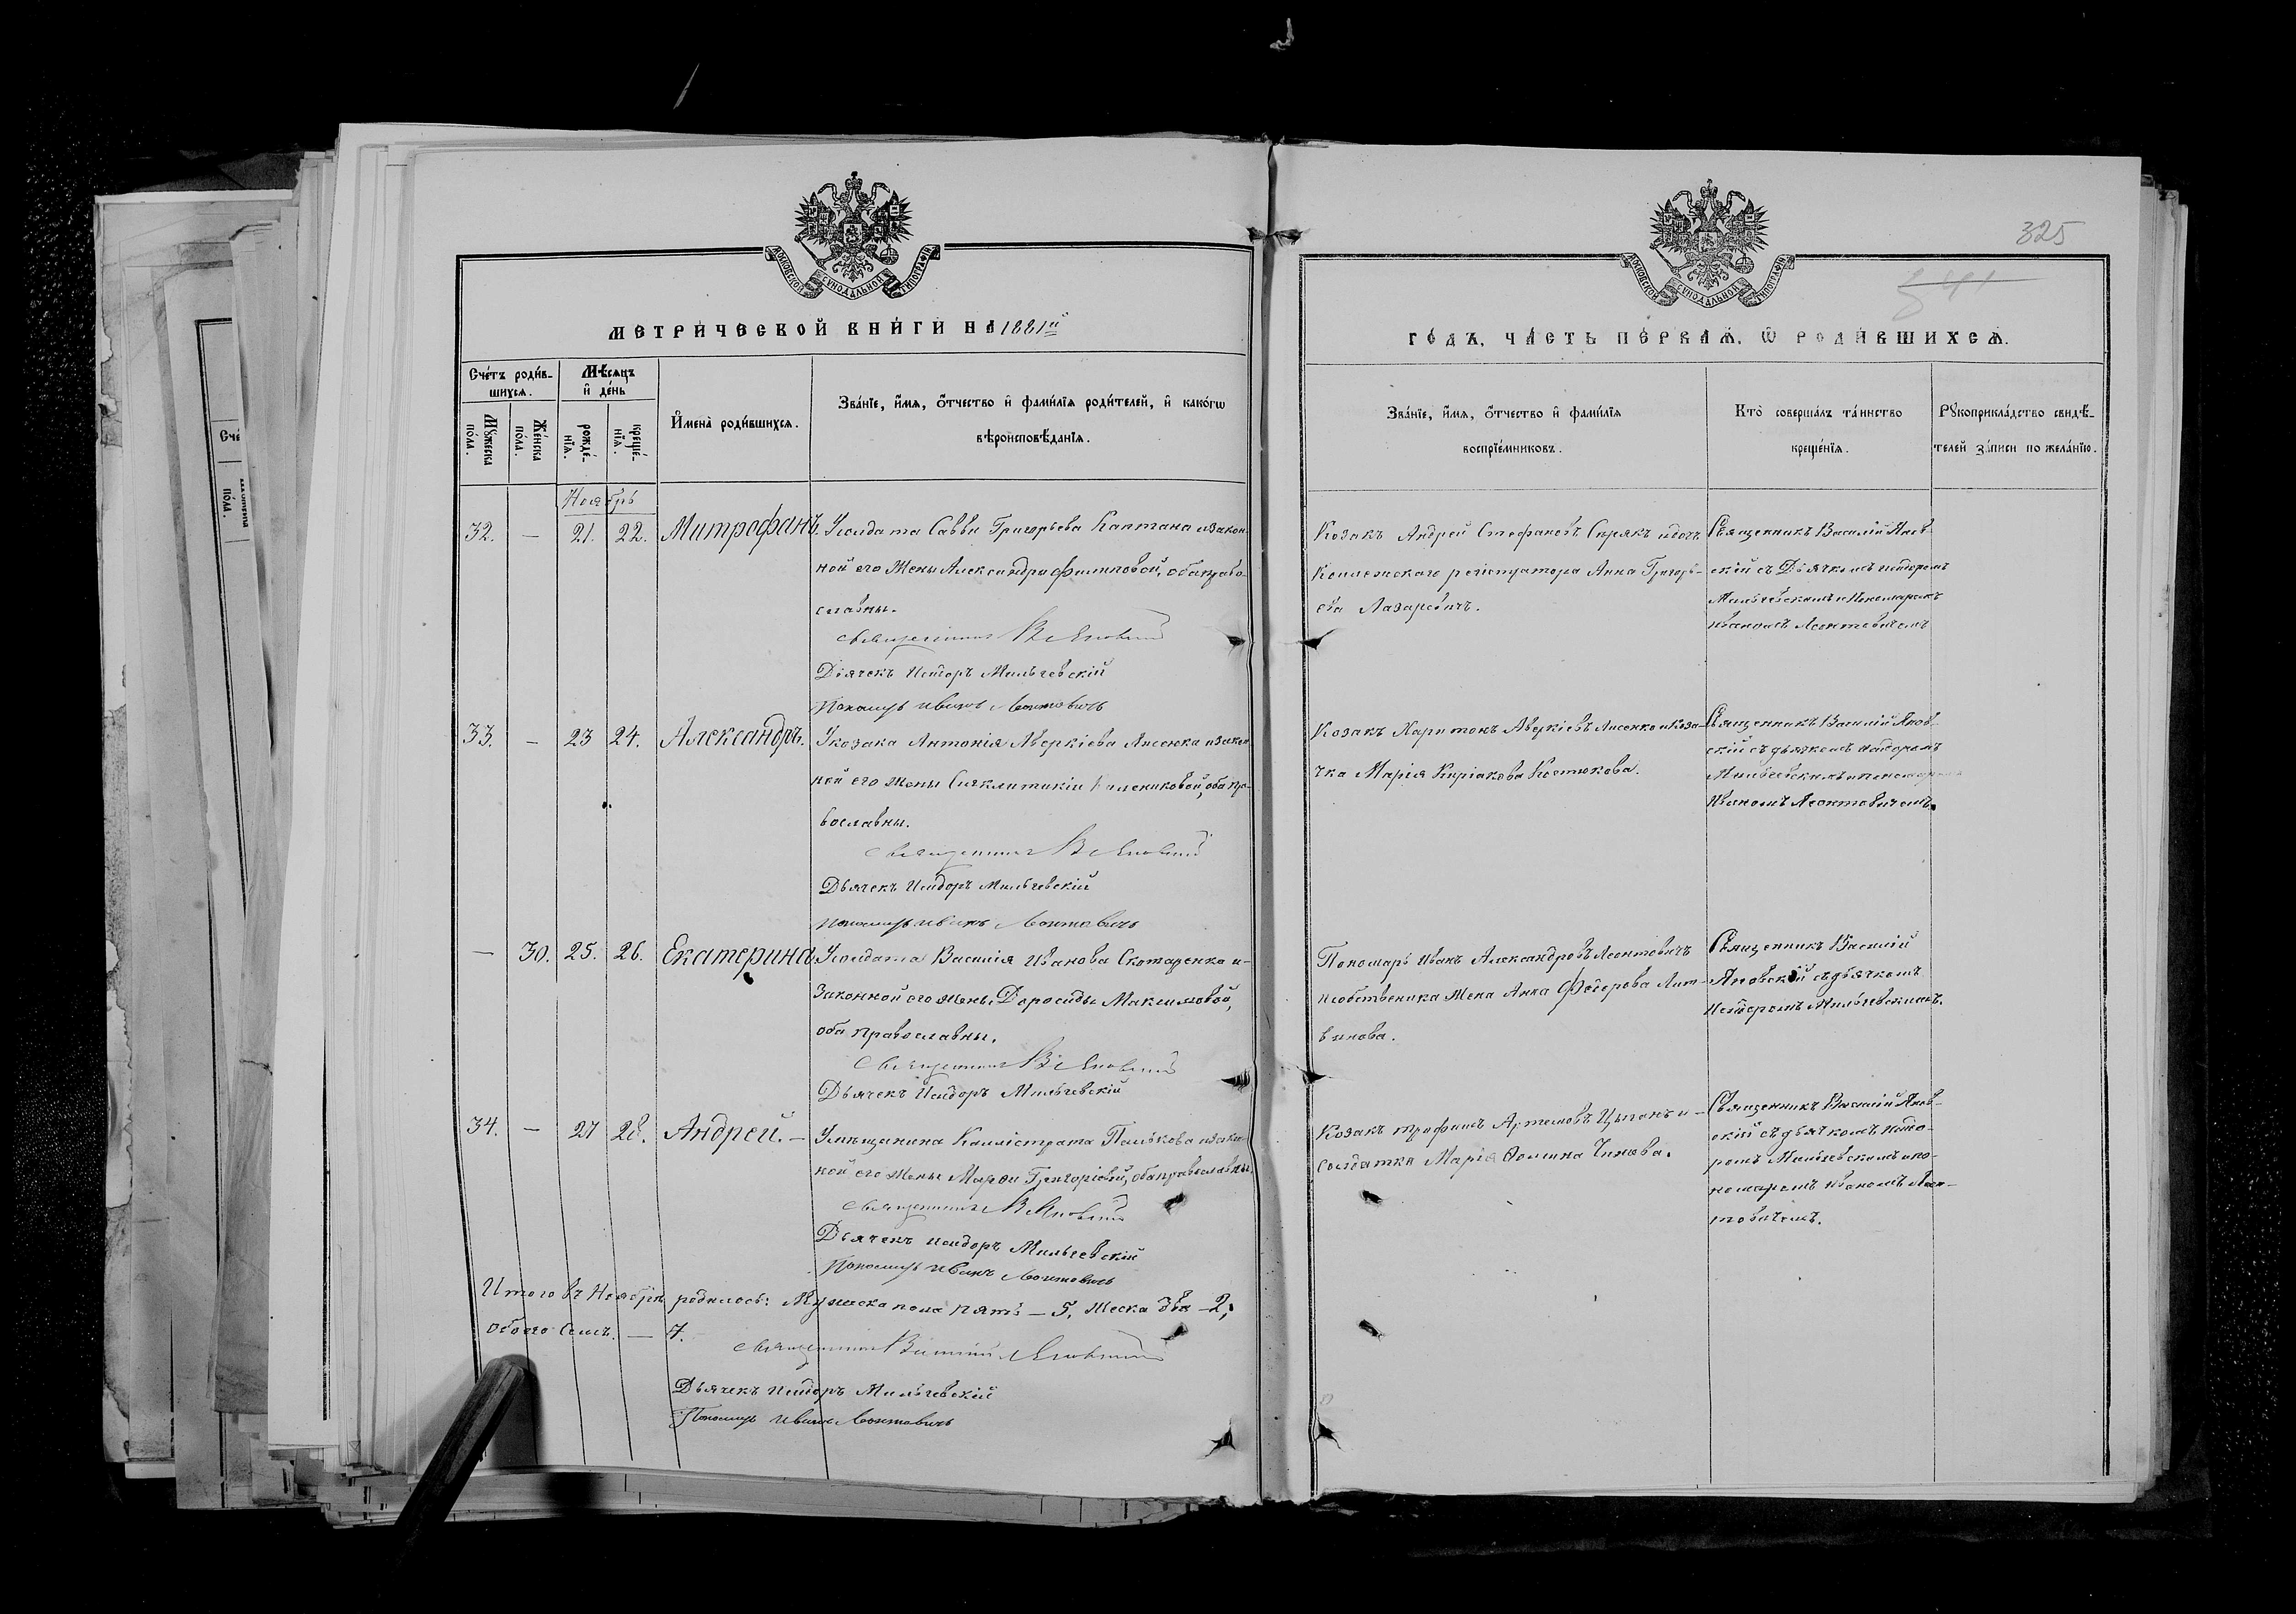 325
МОСКОВСКОЙ СѴНОДАЛЬНОЙ ТИПОГРАФІИ
МОСКОВСКОЙ СѴНОДАЛЬНОЙ ТИПОГРАФІИ
МЕТРИЧЕСКОЙ КНИГИ НА 1881й
ГОДЪ, ЧАСТЬ ПЕРВАЯ, Ѡ РОДИВШИХСЯ.
Счетъ родив-
шихся.
Мужеска
пола.
Женска
пола.
Мѣсяцъ
и день
рожде-
нія.
креще-
нія.
Имена родившихся.
Званіе, имя, отчество и фамилія родителей, и какогѡ
вѣроисповѣданія.
Званіе, имя, отчество и фамилія
воспріемниковъ.
Кто совершалъ таинство
крещенія.
Рукоприкладство свидѣ-
телей записи по желанію.
Ноябрь
32. — 21. 22. Митрофанъ. У солдата Саввы Григорьева Каптана и закон-
ной его жены Александры Филиповой, оба право-
славны.
Священникъ В Яновскій
Дьячекъ Исидоръ Мильчевскій
Пономарь Иванъ Леонтовичъ
Козакъ Андрей Стефановъ Сирякъ и дочь
Коллежскаго регистратора Анна Григорь-
ева Лазаревичъ.
Священникъ Василій Янов-
скій съ Дьячкомъ Исидоромъ
Мильчевскимъ и Пономаремъ
Иваномъ Леонтовичемъ
33. — 23 24. Александръ. У козака Антонія Аверкіева Лисенка и закон-
ной его жены Синклитикіи оба пра-
вославны.
Священникъ В Яновскій
Дьячекъ Исидоръ Мильчевскій
Пономарь Иванъ Леонтовичъ
Козакъ Харитонъ Аверкіевъ Лисенко и коза-
чка Марія Киріакова Костюкова.
Священникъ Василій Янов-
скій съ дьячкомъ Исидоромъ
Мильчевскимъ и пономаремъ
Иваномъ Леонтовичемъ.
— 30. 25. 26. Екатерина У солдата Василія Иванова Скотаренка и
законной его жены Доросиды Максимовой,
оба православны.
Священникъ В Яновскій
Дьячекъ Исидоръ Мильчевскій
Пономарь Иванъ Александровъ Леонтовичъ
и собственика жена Анна Федорова Лит-
винова.
Священникъ Василій
Яновскій съ дьячкомъ
Исидоромъ Мильчевскимъ.
34. — 27 28. Андрей. — У мѣщанина Каллистрата Палькова и закон-
ной его жены Марѳы Григоріевой, оба православны.
Священникъ В Яновскій
Дьячекъ Исидоръ Мильчевскій
Пономарь Иванъ Леонтовичъ
Козакъ Трофимъ Артемовъ Цыганъ и
солдатка Марія Ѳомина Чинова.
Священникъ Василій Янов-
скій съ дьячкомъ Исидо-
ромъ Мильчевскимъ и по-
номаремъ Иваномъ Леон-
товичемъ.
Итого въ Ноябрѣ родилось: Мужеска пола пять — 5, Женска два — 2;
обоего семь. — 7.
Священникъ Василій Яновскій
Дьячекъ Исидоръ Мильчевскій
Пономарь Иванъ Леонтовичъ